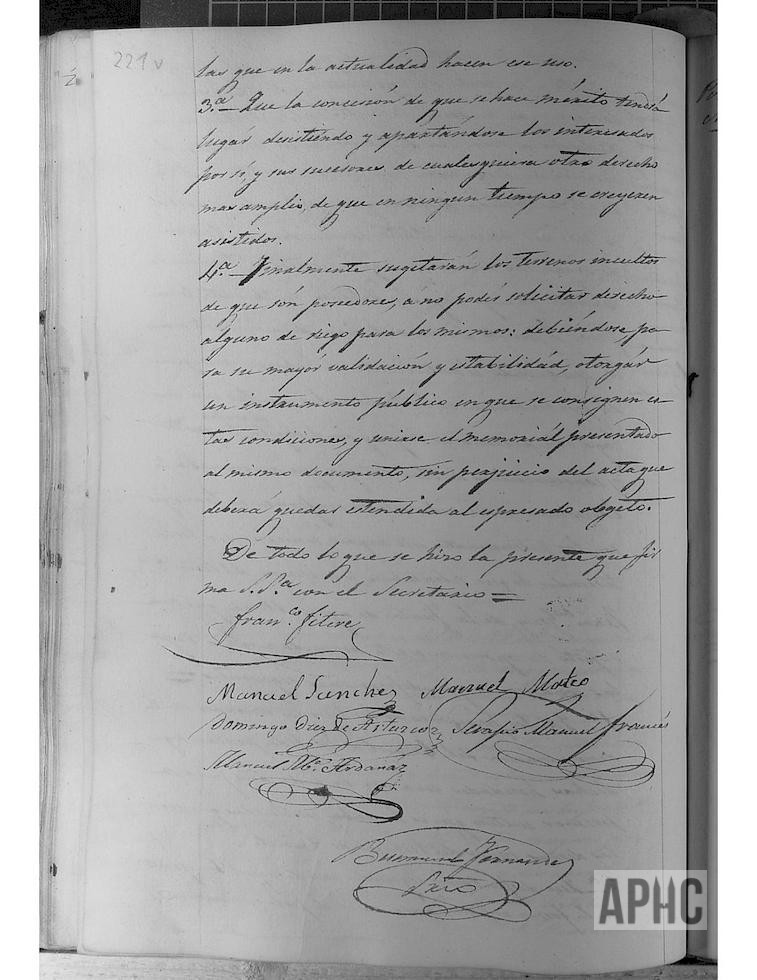 221v
las que en la actualidad hacen ese uso.
3.ª Que la concesión de que se hace mérito tendrá
lugar desistiendo y apartándose los interesados
por sí, y sus sucesores de cualesquiera otro derecho
mas amplio, de que en ningun tiempo se creyeren
asistidos.
4.ª Finalmente sugetarán los terrenos incultos
de que són poseedores, a no podér solicitar derecho
alguno de riego para los mismos: debiéndose pa-
ra su mayór validación y estabilidád, otorgár
un instrumento público en que se consignen es-
tas condiciones, y unirse el memoriál presentado
al mismo documento, sin perjuicio del acta que
deberá quedar estendida al espresado obgeto.
De todo lo que se hizo la presente que fir-
ma S.S.ª con el Secretario=
Fran.co Fitere
Manuel Sanchez Manuel Mateo
Domingo Diez de Ser Manuel Francés
Manuel M.ª Ardanaz
Fernandez
Srio
APHC